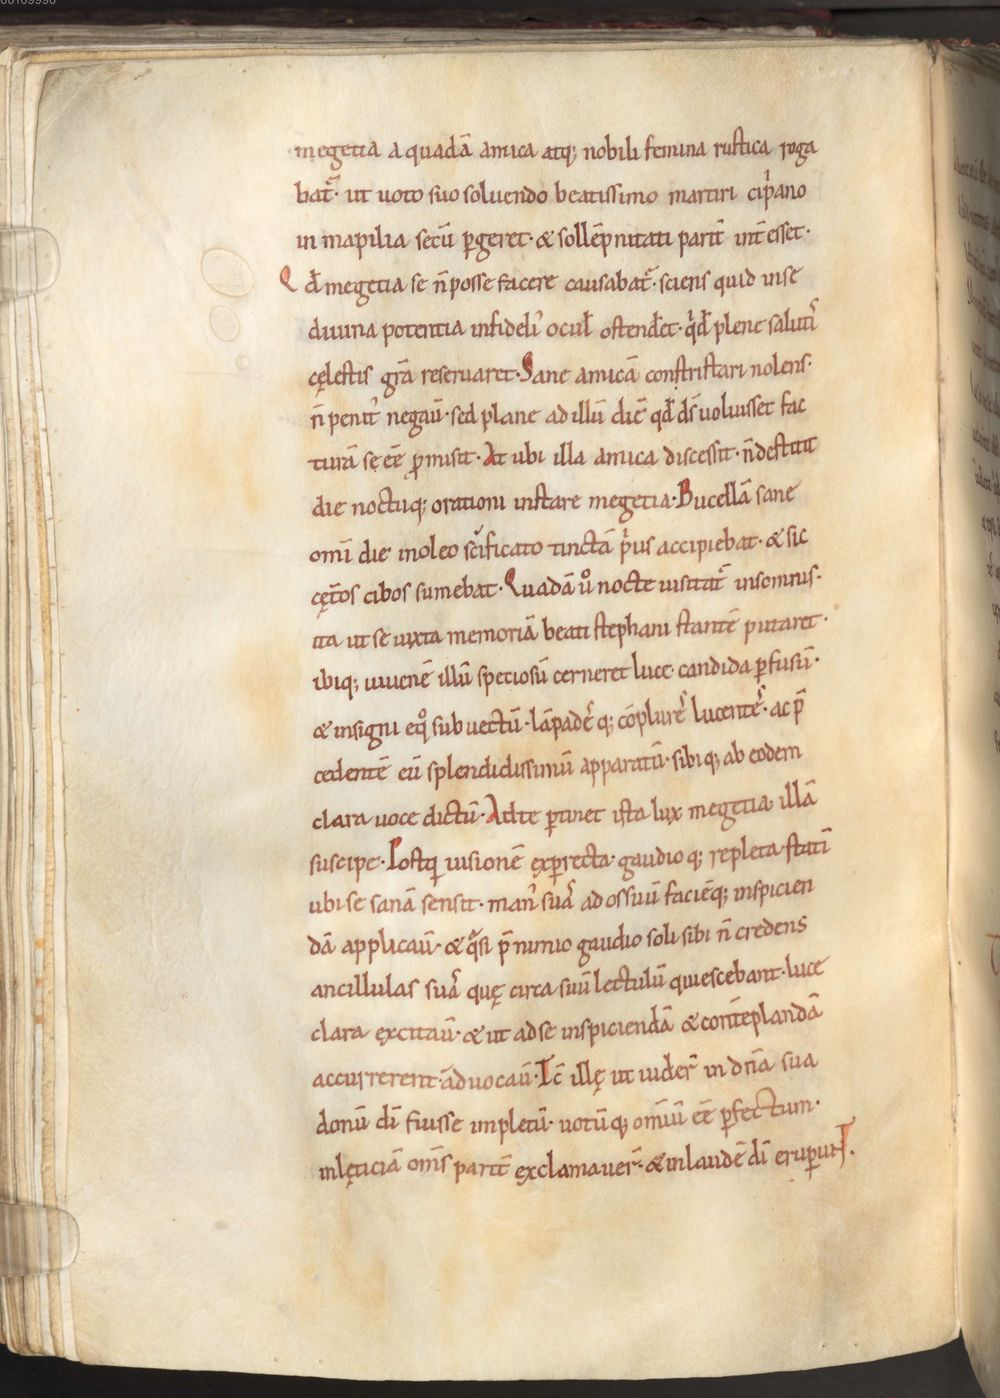 00109990
megetia a quadā amica atq; nobili femina rustica roga
bat᷑· ut uoto suo soluendo beatissimo martiri cip̄ano
in mapilia secū ꝑgeret· & sollēpnitati parit̄ int̄esset·
Qđ megetia se n̄ posse facere causabat᷑· sciens quid in se
diuina potentia infideliͥ ocul̄ ostend̄et· q̇đ plene salutiᷤ
cęlestis gr̄a reseruaret· Sane amicā constristari nolens·
n̄ penitꝰ negaū· sed plane ad illū diē qđ d̄s uoluisset fac
turā sę eē ꝓmisit· At ubi illa amica discessit· n̄ destitit
die noctuq; orationi instare megetia· Bucellā sane
omī die in oleo sc̄ificato tinctā pͥus accipiebat· & sic
cęt̄os cibos sumebat· Quadā ů nocte uisitat᷑ in somnis·
ita ut se iuxta memoriā beati stephani stantē putaret·
ibiq; iuuenē illū speciosū cerneret luce candida ꝑfusū·
& insigni eqͦ subuectū· lāpadeᷤ q; cōplureᷤ lucenteᷤ· ac p̄
cedentē eū splendidissimū apparatū· sibiq; ab eodem
clara uoce dictū· Ad te ꝑtinet ista lux megetia illā
suscipe· Postq̄ uisionē exꝑrecta· gaudio q; repleta· statī
ubi se sanā sensit· manꝰ suaᷤ ad os suū faciēq; inspicien
dā applicaū· & qͣsi p̄ nimio gaudio soli sibi n̄ credens
ancillulas suaᷤ quę circa suū lectulū quiescebant· luce
clara excitaū· & ut ad se inspiciendā & contēplandā
accurrerent· aduocaū· Tc̄ illę ut uider̄ in dn̄a sua
donū dī fuisse inpletū· uotūq; omīū eē ꝑfectum·
in lęticiā om̄s parit̄ exclamauer̄· & in laudē dī eruꝑunt·